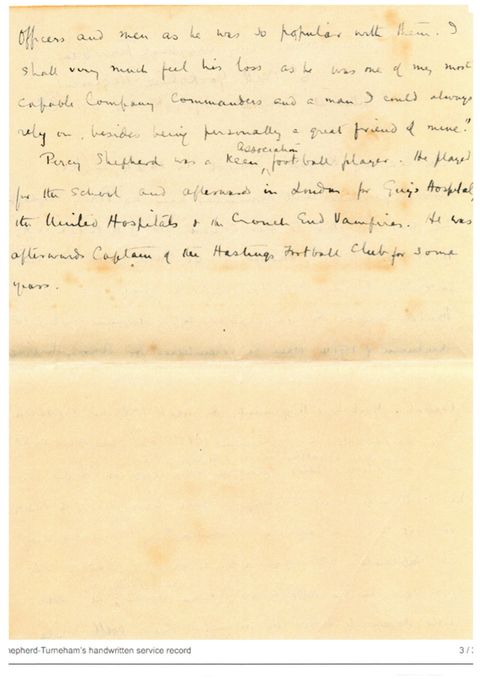 Officers and men as he was so popular with them. I
shall very much feel his loss as he was one of my most
capable Company Commanders and a man I could always
rely on, besides being personally a great friend of mine."
Percy Shepherd was a keen Association football player. He played
for the School and afterwards in London for Guy's Hospital,
the United Hospitals & the Crouch End Vampires. He was
afterwards Captain of the Hastings Football Club for some
years.
hepherd-Turneham's handwritten service record
3 / 3